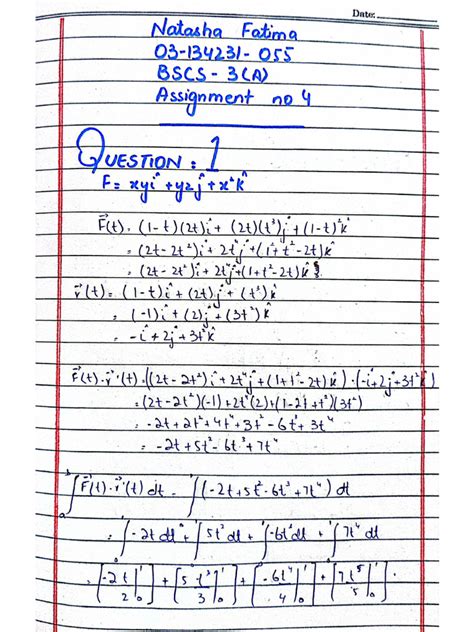 Date:
Natasha Fatima
03-134231-055
BSCS - 3(A)
Assignment no 4
QUESTION: 1
F = xyî + yzĵ + x²k̂
F⃗(t) = (1-t)(2t)î + (2t)(t³)ĵ + (1-t)²k̂
= (2t-2t²)î + 2t⁴ĵ + (1²+t²-2t)k̂
= (2t-2t²)î + 2t⁴ĵ + (1+t²-2t)k̂
r⃗(t) = (1-t)î + (2t)ĵ + (t³)k̂
= (-1)î + (2)ĵ + (3t²)k̂
= -î + 2ĵ + 3t²k̂
F⃗(t)·r⃗'(t) = ((2t-2t²)î + 2t⁴ĵ + (1+t²-2t)k̂)·(-î+2ĵ+3t²k̂)
= (2t-2t²)(-1)+2t⁴(2)+(1-2t+t²)(3t²)
= -2t+2t²+4t⁴+3t²-6t³+3t⁴
= -2t+5t²-6t³+7t⁴
∫ₐᵇ F⃗(t)·r⃗'(t) dt = ∫(-2t+5t²-6t³+7t⁴) dt
= ∫-2t dt + ∫5t² dt + ∫-6t³ dt + ∫7t⁴ dt
= [-2t²/2|₀¹] + [5t³/3|₀¹] + [-6t⁴/4|₀¹] + [7t⁵/5|₀¹]